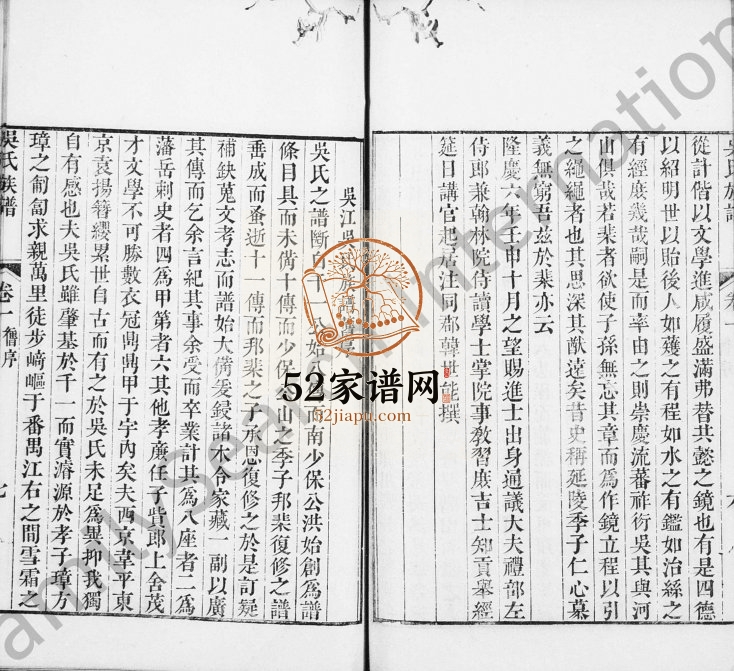 吳氏族譜
卷一
六
從計偕以文學進咸履盛滿弗替其懿之鏡也有是四德
以紹明世以貽後人如蒦之有程如水之有鑑如治絲之
有經庶幾哉嗣是而率由之則崇慶流蕃祚衍吳其與河
山俱哉若棐者欲使子孫無忘其章而爲作鏡立程以引
之繩繩者也其思深其猷遠矣昔史稱延陵季子仁心慕
義無窮吾玆於棐亦云
隆慶六年壬申十月之望賜進士出身通議大夫禮部左
侍郎兼翰林院侍讀學士掌院事敎習庶吉士知貢舉經
筵日講官起居注同郡韓世能撰
吳江吳氏族譜
吳氏之譜斷自千一公始八而南少保公洪始創爲譜
條目具而未俻十傳而少保公山之季子邦棐復修之譜
垂成而蚤逝十一傳而邦棐之子承恩復修之於是訂疑
補缺蒐文考志而譜始大俻爰鋟諸木令家藏一副以廣
其傳而乞余言紀其事余受而卒業計其爲八座者二爲
藩岳刺史者四爲甲第者六其他孝廉任子貲郎上舍茂
才文學不可勝數衣冠鼎鼎甲于宇內矣夫西京韋平東
京袁揚簪纓累世自古而有之於吳氏未足爲異抑我獨
自有感也夫吳氏雖肇基於千一而實濬源於孝子璋方
璋之匍匐求親萬里徒步崎嶇于番禺江右之間雪霜之
吳氏族譜
卷一 舊序
七
52家谱网
52jiapu.com
FamilySearch International